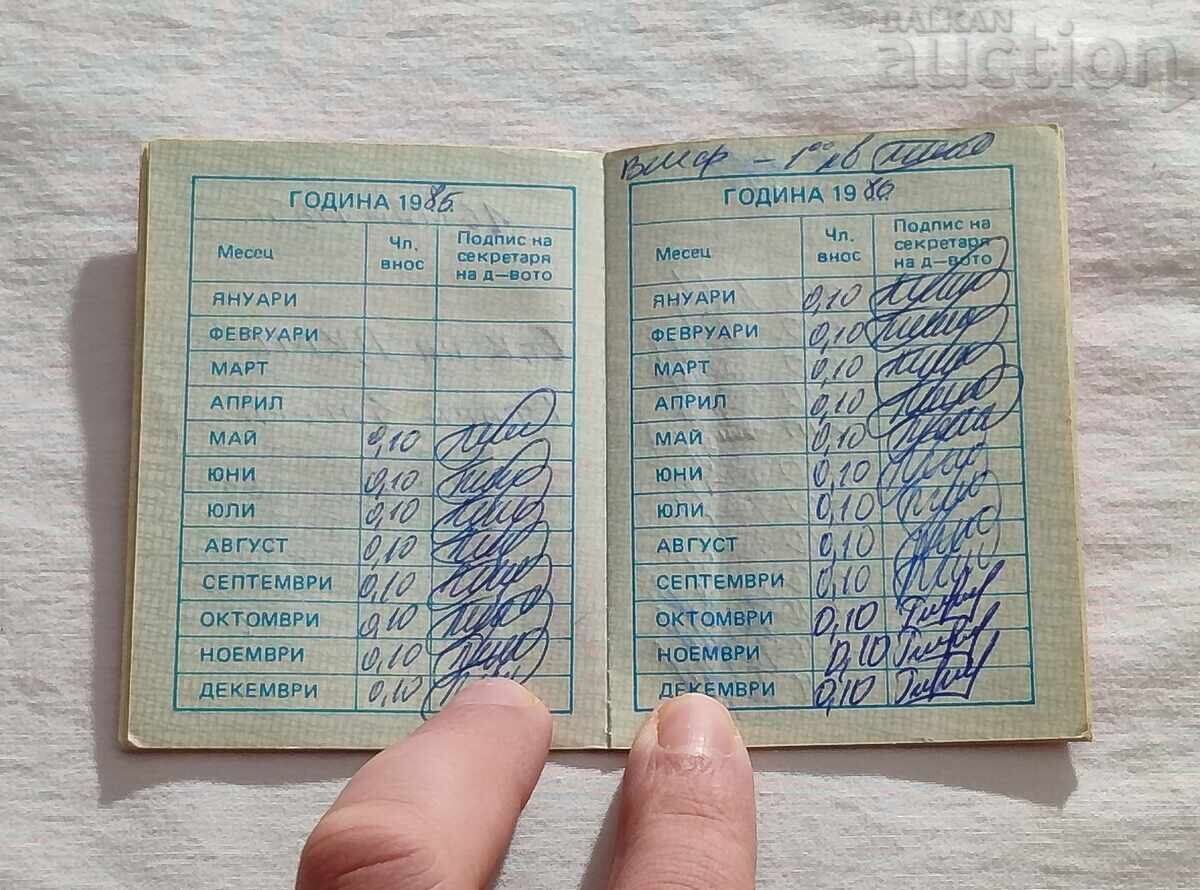 BALKAN
auction
ГОДИНА 1985.
Месец
Чл. внос
Подпис на секретаря на д—вото
ЯНУАРИ
ФЕВРУАРИ
МАРТ
АПРИЛ
МАЙ 0,10
ЮНИ 0,10
ЮЛИ 0,10
АВГУСТ 0,10
СЕПТЕМВРИ 0,10
ОКТОМВРИ 0,10
НОЕМВРИ 0,10
ДЕКЕМВРИ 0,10
ВМСФ — 1⁰⁰ лв
ГОДИНА 1986.
Месец
Чл. внос
Подпис на секретаря на д—вото
ЯНУАРИ 0,10
ФЕВРУАРИ 0,10
МАРТ 0,10
АПРИЛ 0,10
МАЙ 0,10
ЮНИ 0,10
ЮЛИ 0,10
АВГУСТ 0,10
СЕПТЕМВРИ 0,10
ОКТОМВРИ 0,10
НОЕМВРИ 0,10
ДЕКЕМВРИ 0,10